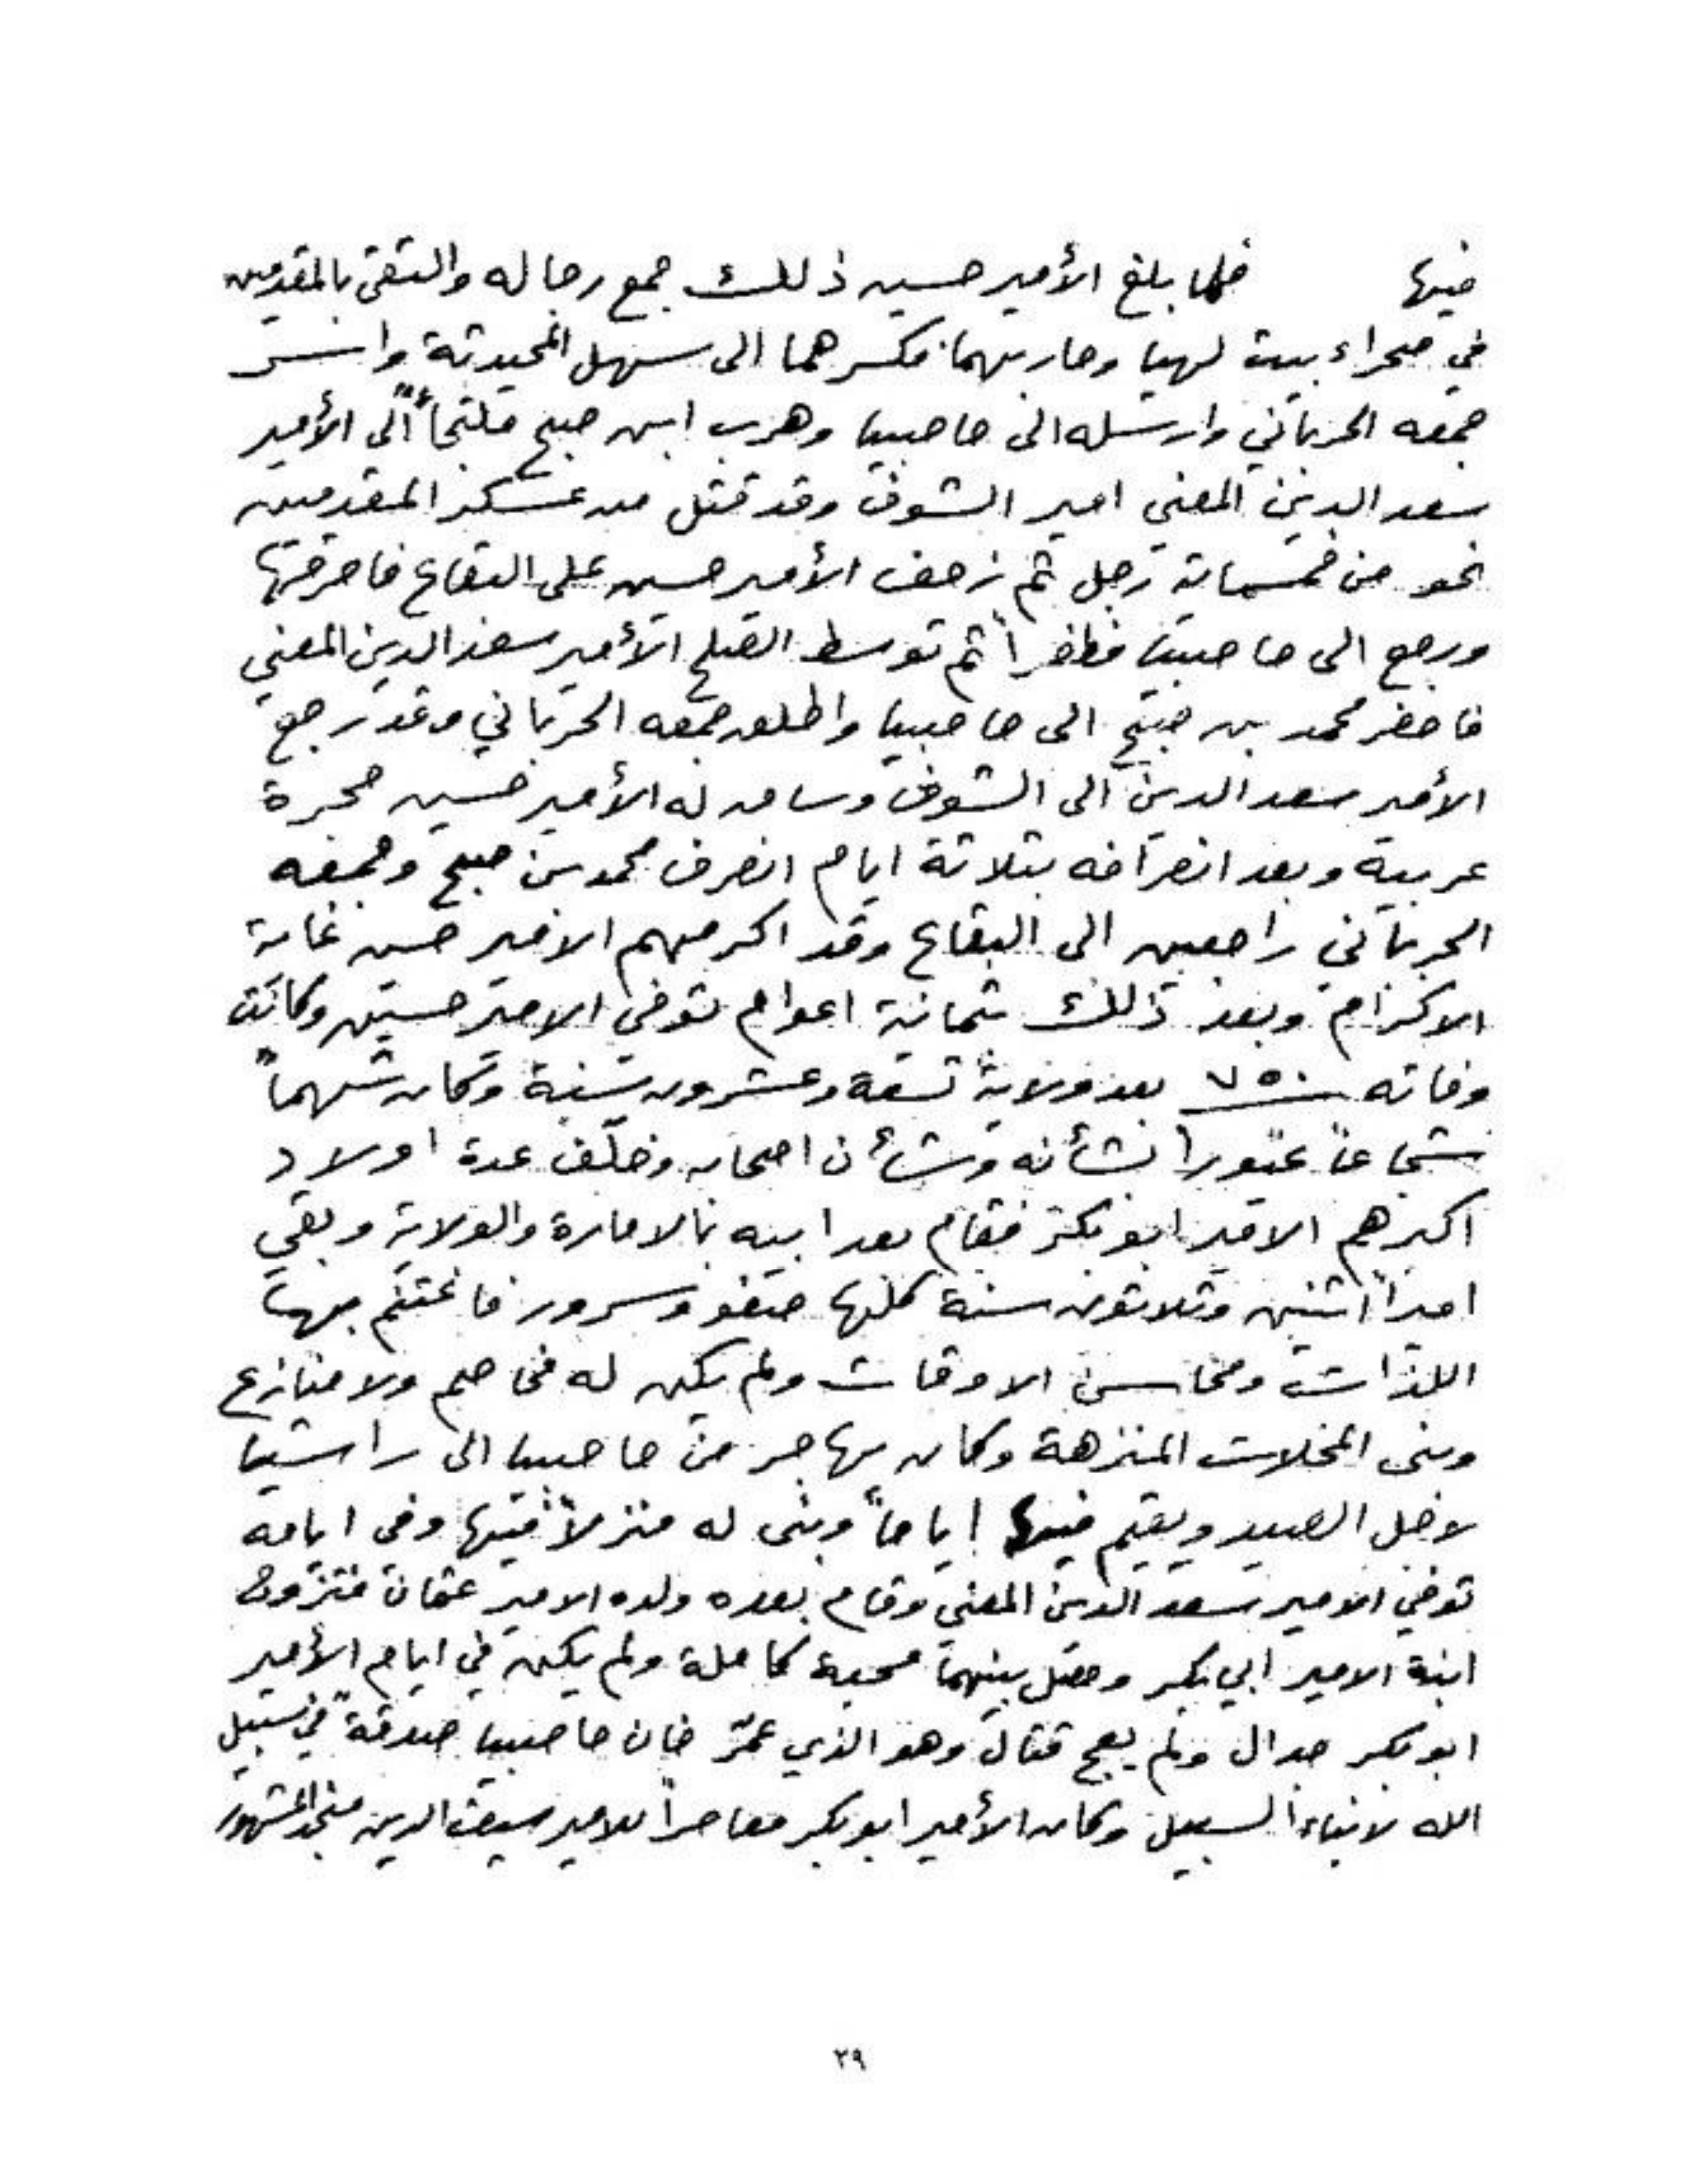 فيها فلما بلغ الأمير حسين ذلك جمع رجاله والتقى بالمقدمين
في صحراء بيت لهيا وحاربهما فكسرهما الى سهل المحيدثة واسر
جمعه الحرباني وارسله الى حاصبيا وهرب ابن صبح ملتجأً الى الأمير
سعد الدين المعني امير الشوف وقد قتل من عسكر المقدمين
نحو من خمسماية رجل ثم زحف الأمير حسين على البقاع فاحرقها
ورجع الى حاصبيا مظفراً ثم توسط الصلح الأمير سعد الدين المعني
فاحضر محمد بن صبح الى حاصبيا واطلق جمعه الحرباني وقد رجع
الأمير سعد الدين الى الشوف وساق له الأمير حسين حجرة
عربية وبعد انصرافه بثلاثة ايام انصرف محمد بن صبح وجمعه
الحرباني راجعين الى البقاع وقد اكرمهم الامير حسين غاية
الاكرام وبعد ذلك بثمانية اعوام توفي الامير حسين وكانت
وفاته ٧٥٠ بعد ولاية تسعة وعشرون سنة وكان شهماً
شجاعاً غيوراً لشأنه وشأن اصحابه وخلّف عدة اولاد
اكبرهم الامير ابو بكر فقام بعد ابيه بالامارة والولاية وبقي
اميراً اثنين وثلاثون سنة كلها صفو وسرور فاغتنم بها
اللذات ومحاسن الاوقات ولم يكن له مخاصم ولا منازع
وبنى المحلات المنزهة وكان يهاجر من حاصبيا الى راشيا
لاجل الصيد ويقيم فيها اياماً وبنى له منزلاً فيها وفي ايامه
توفي الامير سعد الدين المعني وقام بعده ولده الامير عثمان فتزوج
ابنة الامير ابي بكر وحصل بينهما محبة كاملة ولم يكن في ايام الأمير
ابو بكر جدال ولم يهج قتال وهو الذي عمّر خان حاصبيا صدقةً في سبيل
الله لابناء السبيل وكان الأمير ابو بكر معاصراً للامير سيف الدين المشهور
٣٩